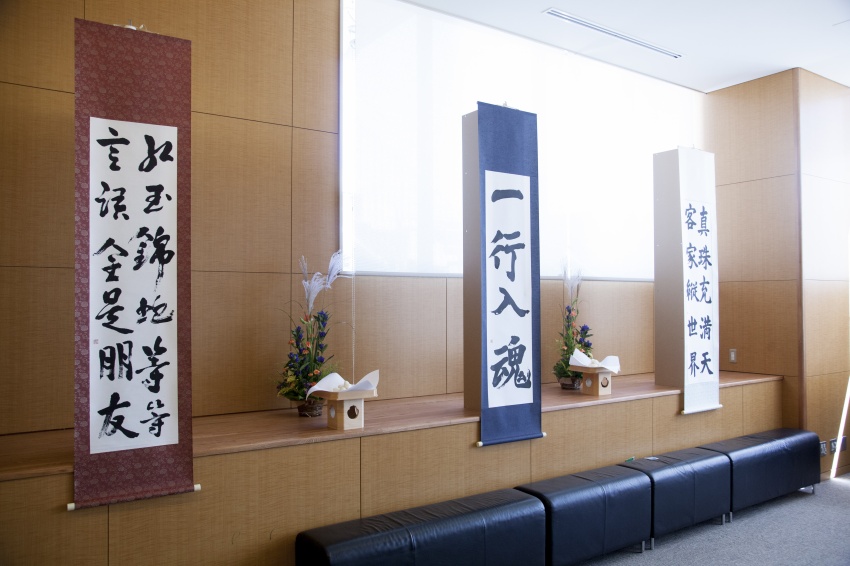 紅玉錦蛇等等
言語全是朋友
一行入魂
真珠充満天
客家縦世界